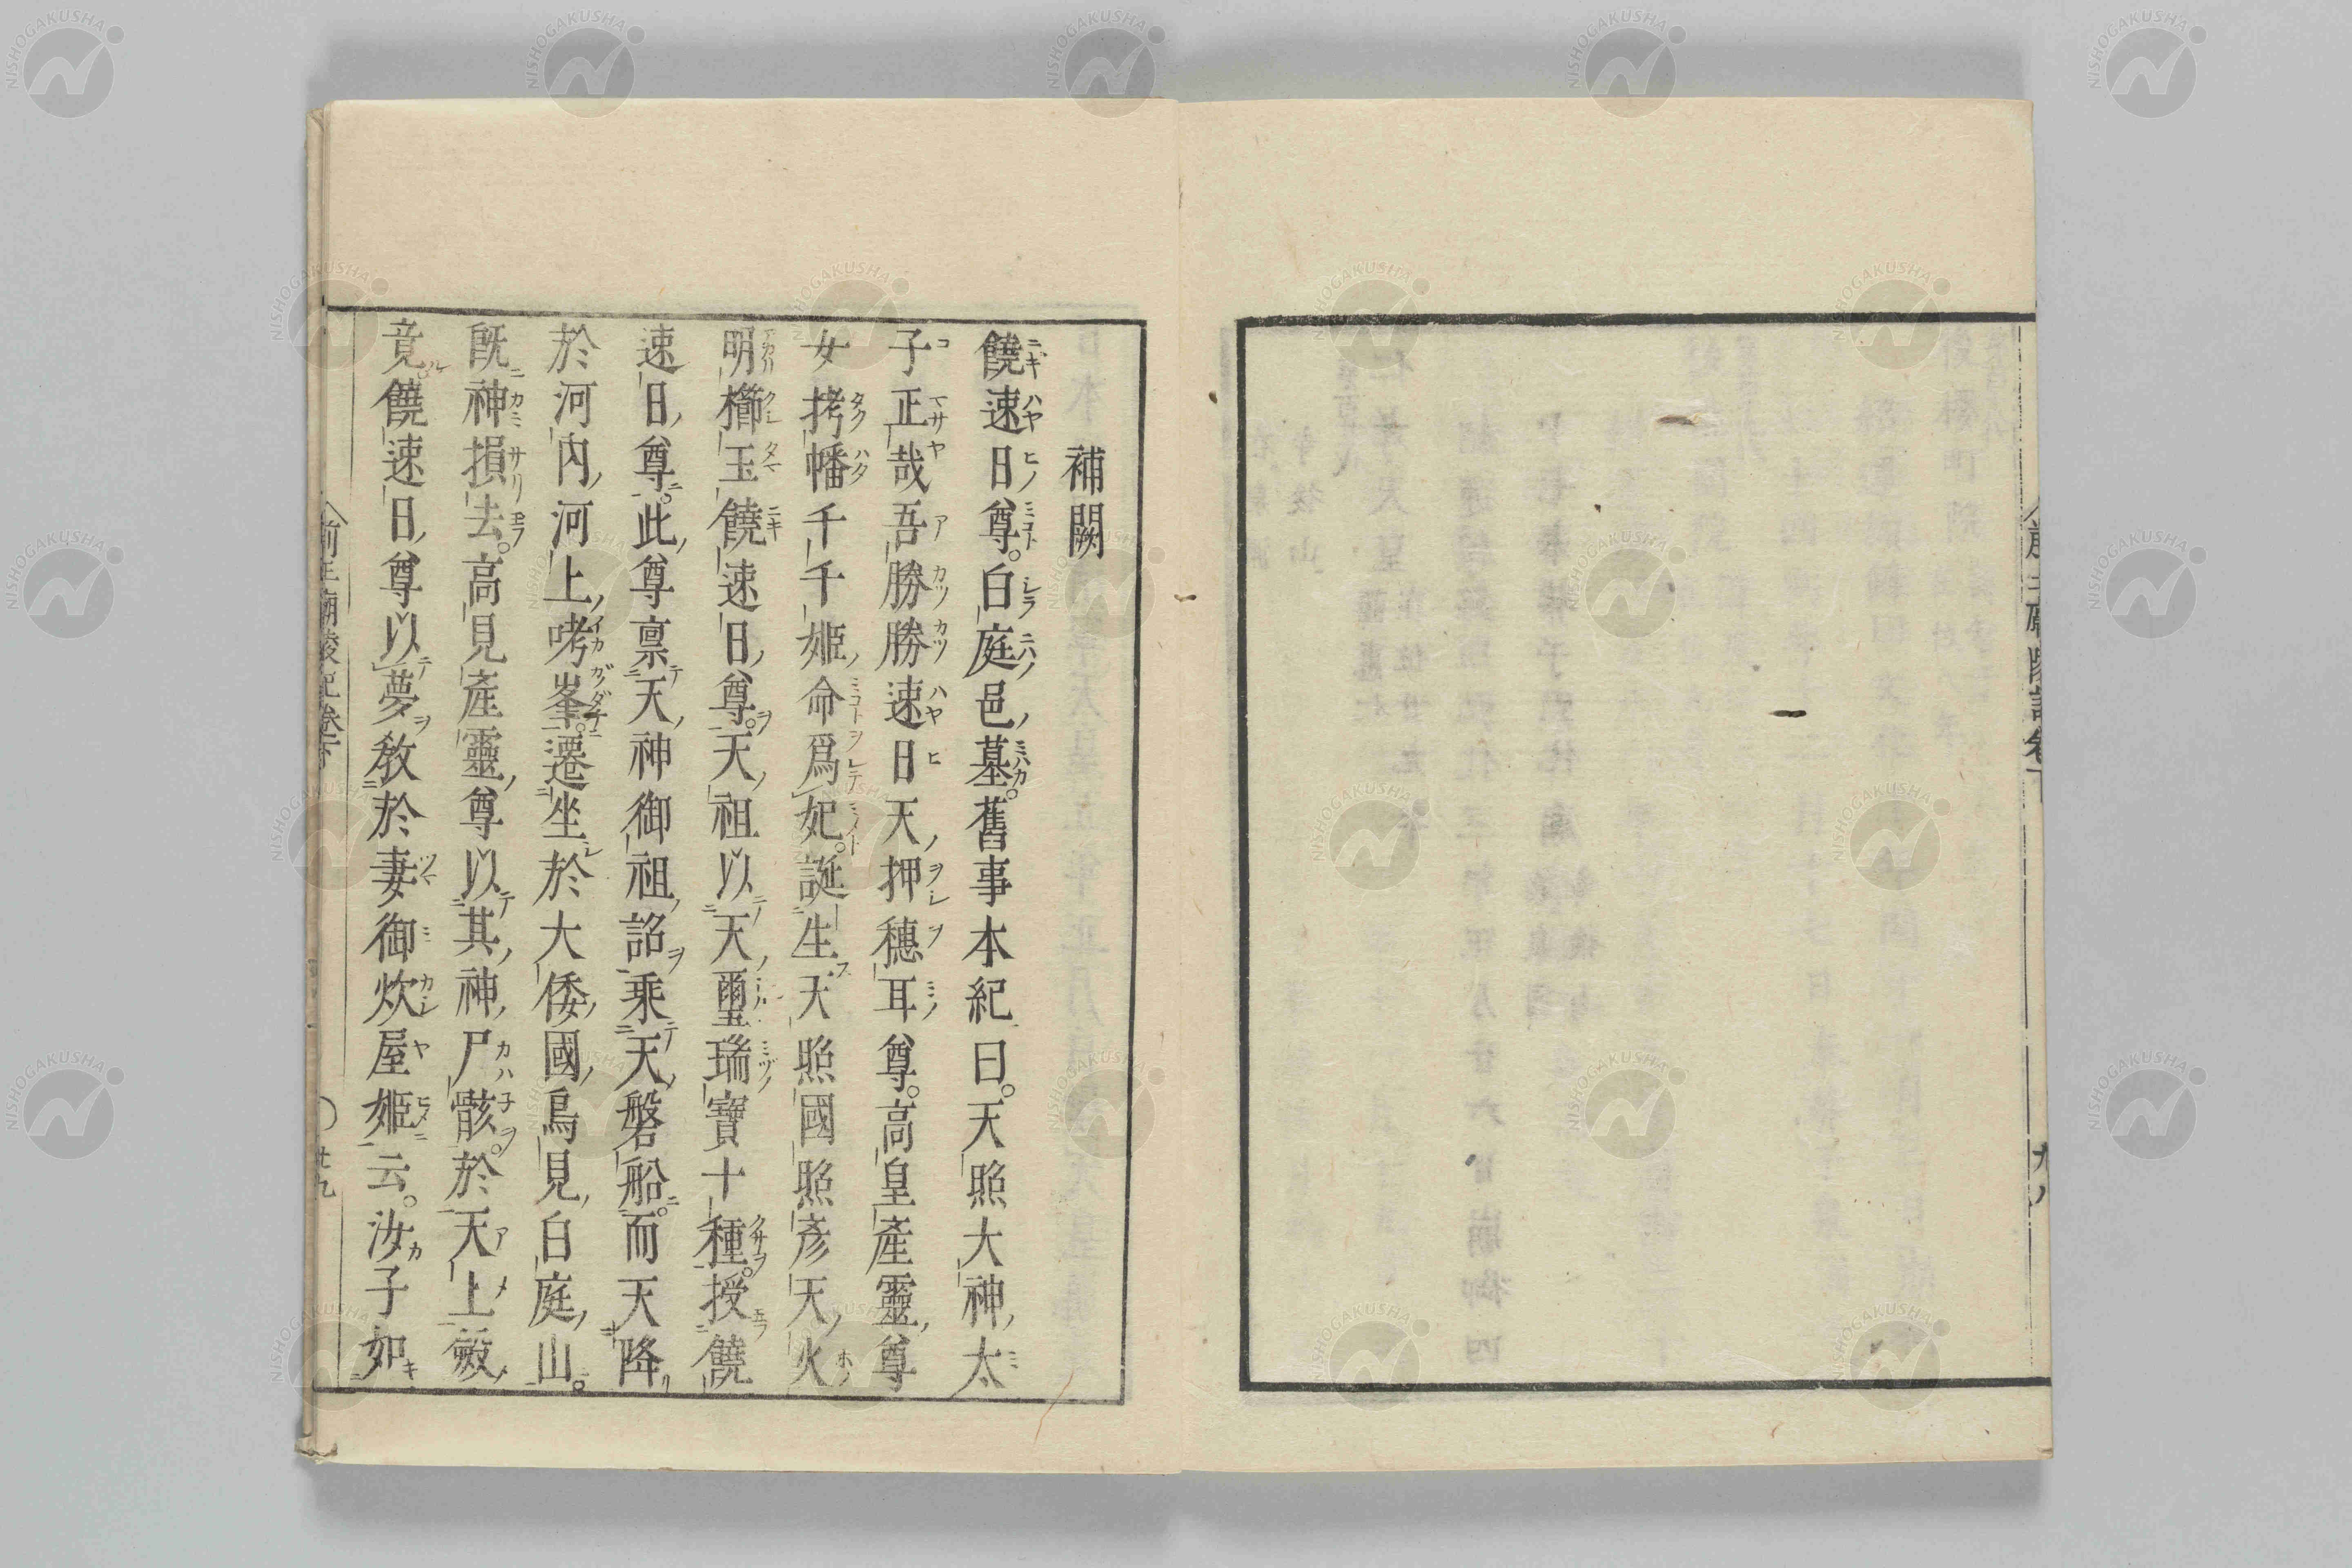 補闕
饒速日尊。白庭邑墓。舊事本紀曰。天照大神太
子正哉吾勝勝速日天押穗耳尊。高皇產靈尊
女拷幡千千姬命爲妃。誕生天照國照彥天火
明櫛玉饒速日尊。天祖以天璽瑞寶十種。授饒
速日尊。此尊禀天神御祖詔乘天磐船。而天降
於河內河上哮峯。遷坐於大倭國鳥見白庭山。
既神損去。高見產靈尊以其神尸骸。於天上斂
竟饒速日尊以夢敎於妻御炊屋姬云。汝子如
前王廟陵記卷下
廿九